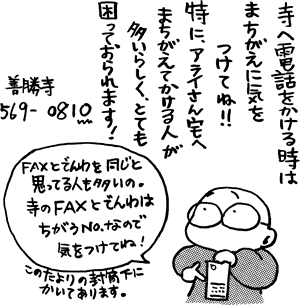 寺へ電話をかける時は
まちがえに気を
つけてね!!
特に、アライさん宅へ
まちがえてかける人が
多いらしく、とても
困っておられます!
善勝寺
569-0810
FAXとでんわを同じと
思ってる人も多いの。
寺のFAXとでんわは
ちがうNo.なので
気をつけてね!
このたよりの封筒下に
かいてあります。